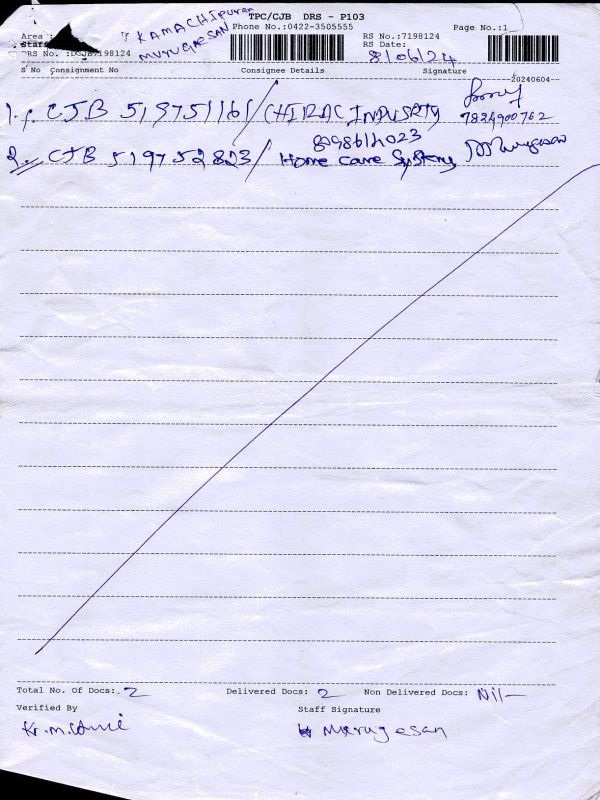 TPC/CJB DRS - P103
Area : KAMACHIpuram Phone No.:0422-3505555 RS No.:7198124 Page No.:1
Staff MURUGAESAN RS Date: 8/06/24
DRS No. :DCJB7198124
S No Consignment No Consignee Details Signature
20240604
1. CJB 519751161/ CHIRAC INDUSRTY 7824900762
2. CJB 519752823/ Home care System Murugesan
Total No. Of Docs: 2 Delivered Docs: 2 Non Delivered Docs: Nil
Verified By Staff Signature
Murugesan